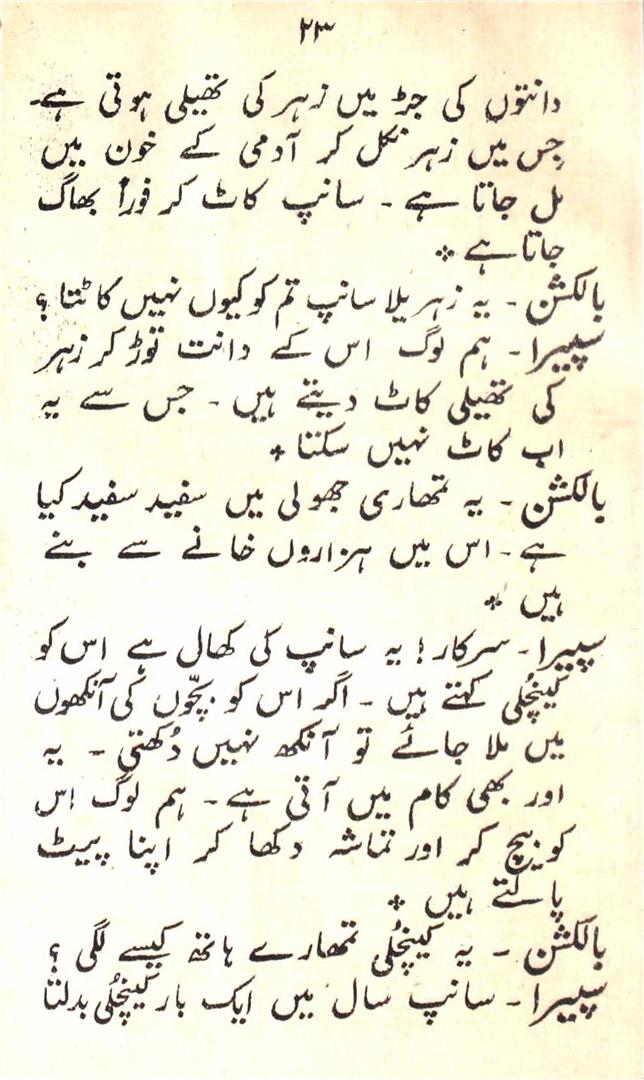 ۲۳
دانتوں کی جڑ میں زہر کی تھیلی ہوتی ہے۔
جس میں زہر نکل کر آدمی کے خون میں
مل جاتا ہے ۔ سانپ کاٹ کر فوراً بھاگ
جاتا ہے ٭
بالکشن ۔ یہ زہریلا سانپ تم کو کیوں نہیں کاٹتا ؟
سپیرا ۔ ہم لوگ اس کے دانت توڑ کر زہر
کی تھیلی کاٹ دیتے ہیں ۔ جس سے یہ
اب کاٹ نہیں سکتا ٭
بالکشن ۔ یہ تمھاری جھولی میں سفید سفید کیا
ہے ۔ اس میں ہزاروں خانے سے بنے
ہیں ٭
سپیرا ۔ سرکار ! یہ سانپ کی کھال ہے اس کو
کینچُلی کہتے ہیں ۔ اگر اس کو بچّوں کی آنکھوں
میں ملا جائے تو آنکھ نہیں دُکھتی ۔ یہ
اور بھی کام میں آتی ہے ۔ ہم لوگ اِس
کو بیچ کر اور تماشہ دکھا کر اپنا پیٹ
پالتے ہیں ٭
بالکشن ۔ یہ کینچُلی تمھارے ہاتھ کیسے لگی ؟
سپیرا ۔ سانپ سال میں ایک بار کینچُلی بدلتا